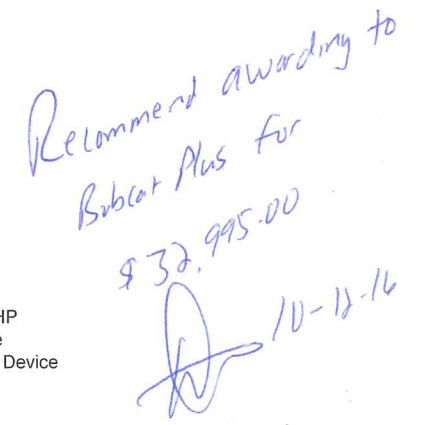 Recommend awarding to
Bobcat Plus for
$32,995.00
10-12-16
HP
e
Device